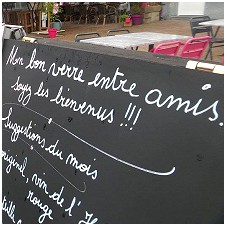 Mon bon verre entre amis.
soyez les bienvenus !!!
Suggestions du mois
originel, vin de l'
rouge